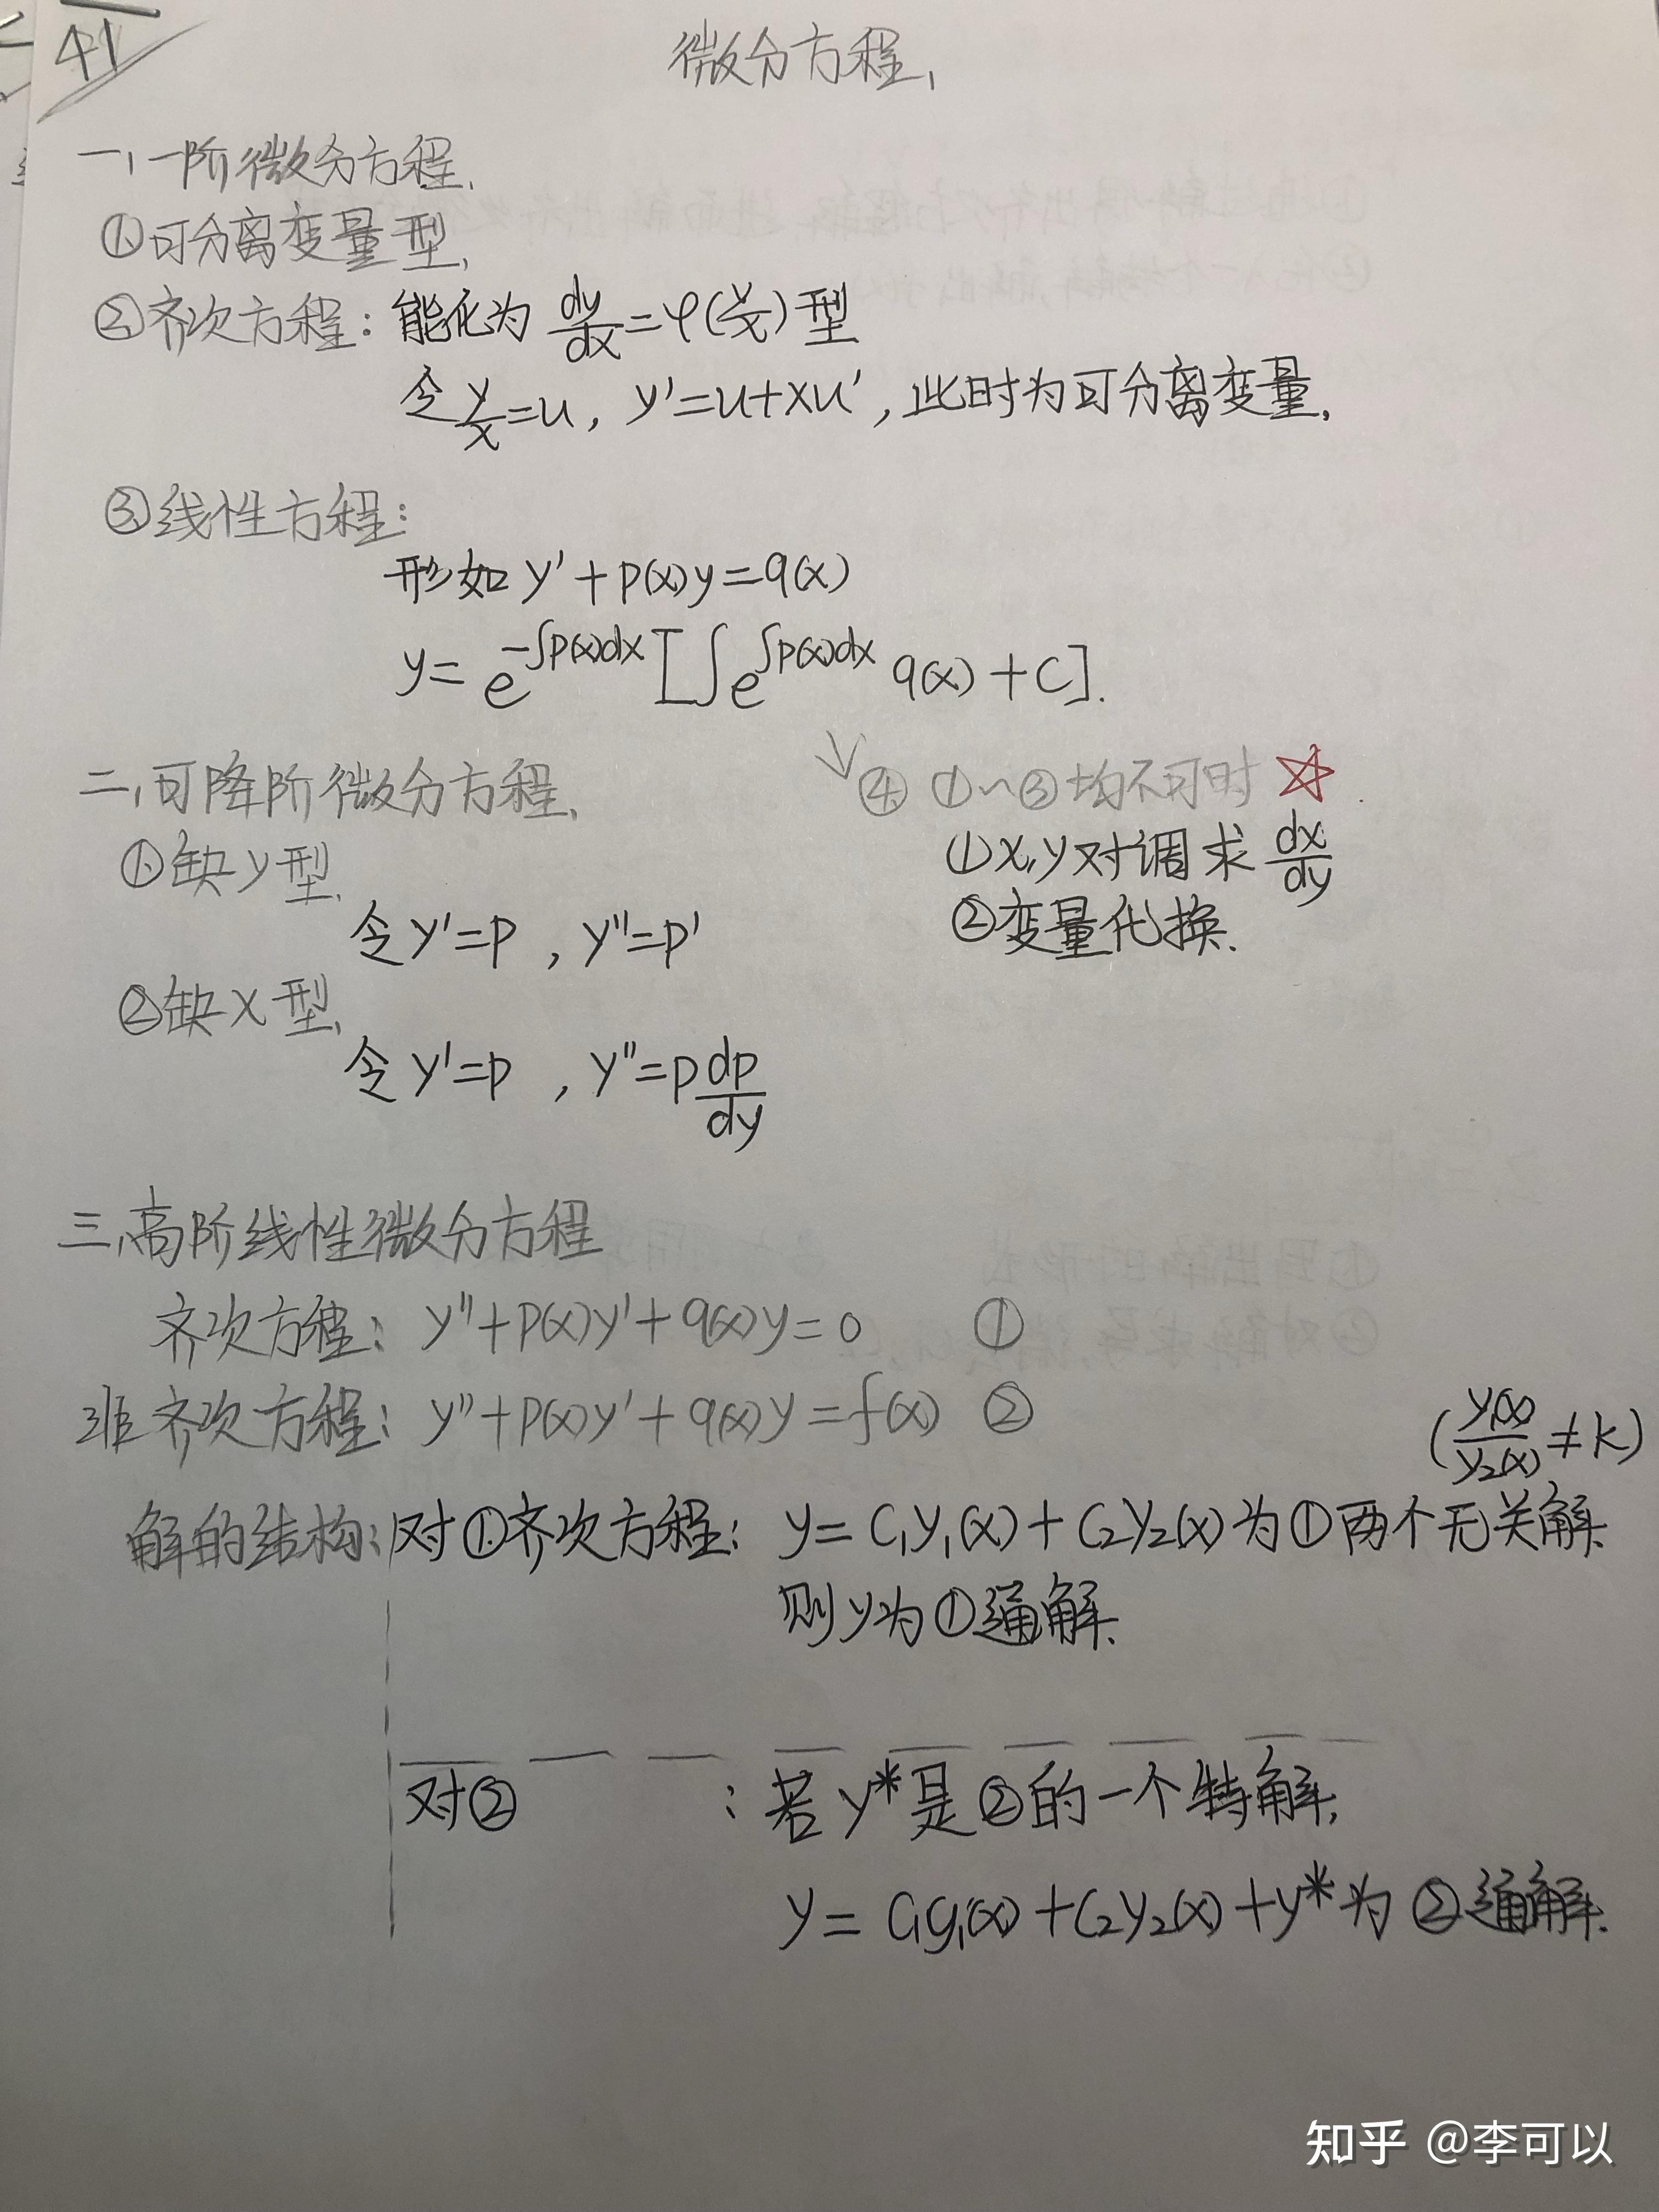 41
微分方程、
一、一阶微分方程、
①可分离变量型、
②齐次方程：能化为 dy/dx=φ(y/x)型
令y/x=u, y'=u+xu', 此时为可分离变量、
③线性方程：
形如 y'+p(x)y=q(x)
y=e^{-∫p(x)dx}[∫e^{∫p(x)dx} q(x)+C].
二、可降阶微分方程、
①缺y型、
令y'=p , y''=p'
②缺x型、
令y'=p , y''=p dp/dy
④ ①~③均不可时 ☆
①x,y对调求 dx/dy
②变量代换、
三、高阶线性微分方程
齐次方程：y''+p(x)y'+q(x)y=0 ①
非齐次方程：y''+p(x)y'+q(x)y=f(x) ②
(y₁(x)/y₂(x)≠k)
解的结构：对①齐次方程：y=C₁y₁(x)+C₂y₂(x)为①两个无关解、
则y为①通解、
对② ：若y*是②的一个特解，
y=C₁y₁(x)+C₂y₂(x)+y*为②通解、
知乎 @李可以